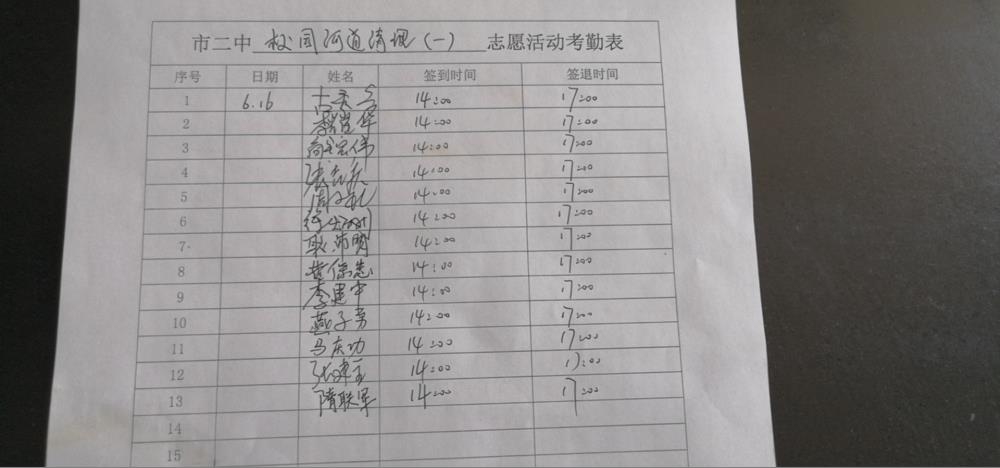 市二中 校园河道清理（一） 志愿活动考勤表
序号 日期 姓名 签到时间 签退时间
1 6.16 14:00 17:00
2 14:00 17:00
3 14:00 17:00
4 14:00 17:00
5 14:00 17:00
6 14:00 17:00
7 耿沛明 14:00 17:00
8 14:00 17:00
9 李建中 14:00 17:00
10 燕子勇 14:00 17:00
11 马庆功 14:00 17:00
12 14:00 17:00
13 隋联军 14:00 17:00
14
15